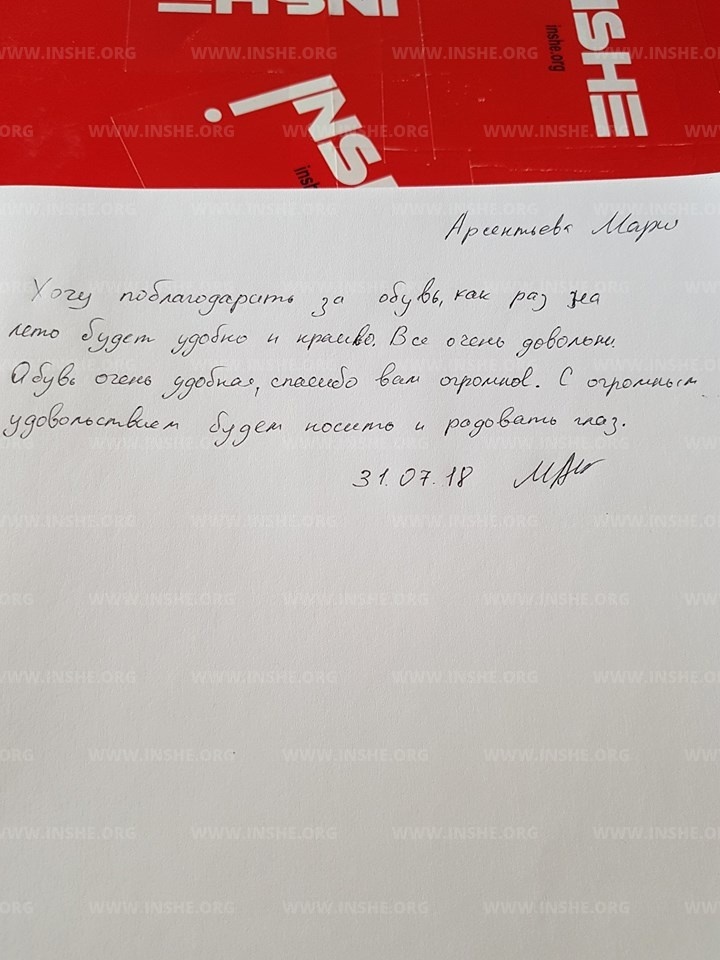 INSHE
INSHE
inshe.org
INS
insh
Арсентьева Мария
Хочу поблагодарить за обувь, как раз на
лето будет удобно и красиво. Все очень довольны.
Обувь очень удобная, спасибо вам огромное. С огромным
удовольствием будем носить и радовать глаз.
31.07.18
WWW.INSHE.ORG